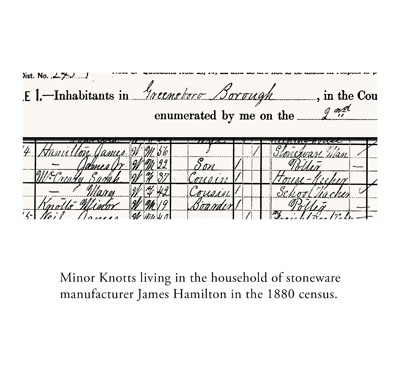 Dist. No. 243
E 1.—Inhabitants in Greensboro Borough, in the Cou
enumerated by me on the 2nd
4 Hamilton James W M 56 Stoneware Man
— James Jr W M 22 Son / Potter
McCnaty Sarah W F 37 Cousin / House-Keeper
— Mary W F 42 Cousin / School Teacher
Knotts Minor W M 19 Boarder / Potter
James W M 40
Minor Knotts living in the household of stoneware
manufacturer James Hamilton in the 1880 census.